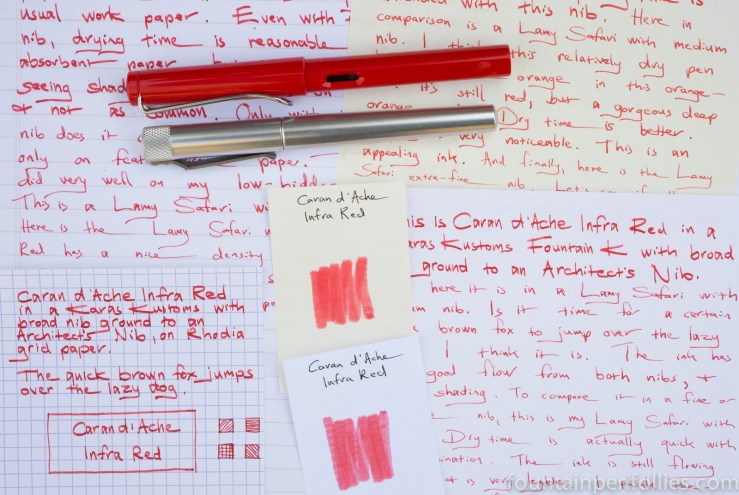 usual work paper. Even with
nib, drying time is reasonable
absorbent paper
seeing shad
or not as common. Only with
nib does it
only on feat paper.
did very well on my low-bidder
This is a Lamy Safari wi
Here is the Lamy Safari w
Red has a nice density
with this nib. Here in
comparison is a Lamy Safari with medium
nib. I think this relatively dry pen
orange in this orange-
it's still red, but a gorgeous deep
orange Dry time is better.
very noticeable. This is an
appealing ink. And finally, here is the Lamy
Safari extra-fine nib.
Caran d'Ache
Infra Red
Caran d'Ache
Infra Red
Caran d'Ache Infra Red
in a Karas Kustoms with
broad nib ground to an
Architect's Nib, on Rhodia
grid paper.
The quick brown fox jumps
over the lazy dog.
Caran d'Ache
Infra Red
his is Caran d'Ache Infra Red in a
aras Kustoms Fountain K with broad
ground to an Architect's Nib.
here it is in a Lamy Safari with
um nib. Is it time for a certain
brown fox to jump over the lazy
I think it is. The ink has
good flow from both nibs, +
shading. To compare it in a fine or
nib, this is my Lamy Safari with
Dry time is actually quick with
ination. The ink is still flowing
t is very
fountainpenfollies.com